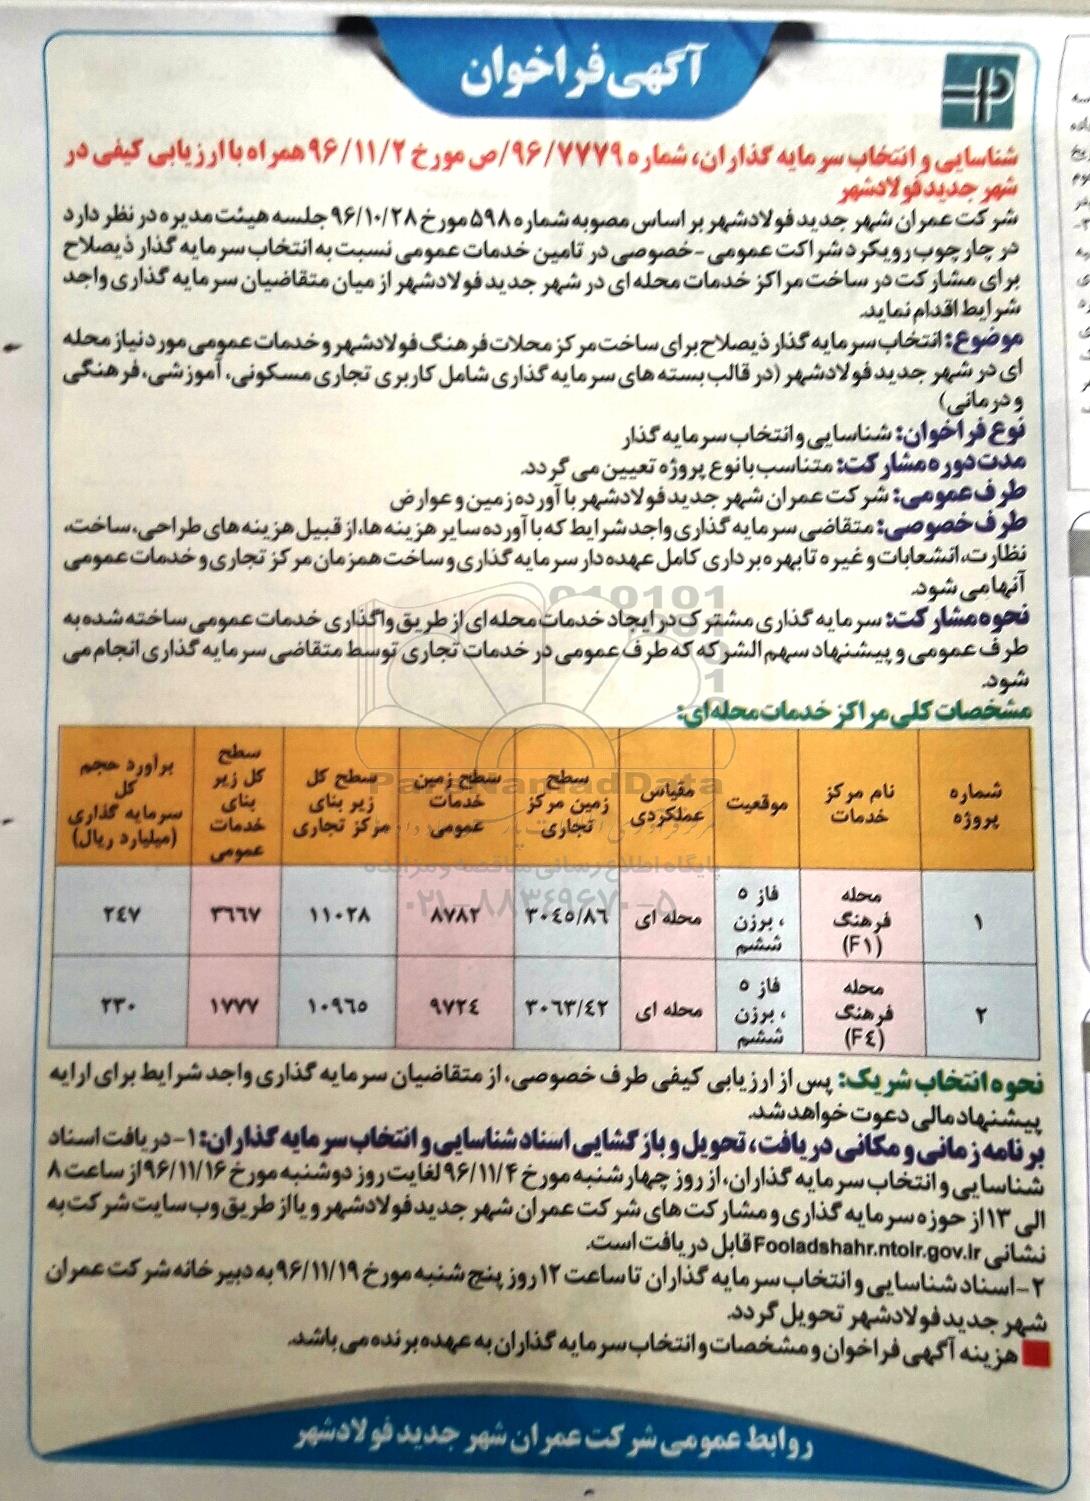 آگهی فراخوان
شناسایی و انتخاب سرمایه گذاران، شماره ۹۶/۷۷۷۹/ص مورخ ۹۶/۱۱/۲ همراه با ارزیابی کیفی در
شهر جدید فولادشهر
شرکت عمران شهر جدید فولادشهر بر اساس مصوبه شماره ۵۹۸ مورخ ۹۶/۱۰/۲۸ جلسه هیئت مدیره در نظر دارد
در چارچوب رویکرد شراکت عمومی-خصوصی در تامین خدمات عمومی نسبت به انتخاب سرمایه گذار ذیصلاح
برای مشارکت در ساخت مراکز خدمات محله ای در شهر جدید فولادشهر از میان متقاضیان سرمایه گذاری واجد
شرایط اقدام نماید.
موضوع: انتخاب سرمایه گذار ذیصلاح برای ساخت مرکز محلات فرهنگ فولادشهر و خدمات عمومی مورد نیاز محله
ای در شهر جدید فولادشهر (در قالب بسته های سرمایه گذاری شامل کاربری تجاری مسکونی، آموزشی، فرهنگی
و درمانی)
نوع فراخوان: شناسایی و انتخاب سرمایه گذار
مدت دوره مشارکت: متناسب با نوع پروژه تعیین می گردد.
طرف عمومی: شرکت عمران شهر جدید فولادشهر با آورده زمین و عوارض
طرف خصوصی: متقاضی سرمایه گذاری واجد شرایط که با آورده سایر هزینه ها، از قبیل هزینه های طراحی، ساخت،
نظارت، انشعابات و غیره تا بهره برداری کامل عهده دار سرمایه گذاری و ساخت همزمان مرکز تجاری و خدمات عمومی
آنها می شود.
نحوه مشارکت: سرمایه گذاری مشترک در ایجاد خدمات محله ای از طریق واگذاری خدمات عمومی ساخته شده به
طرف عمومی و پیشنهاد سهم الشرکه که طرف عمومی در خدمات تجاری توسط متقاضی سرمایه گذاری انجام می
شود.
مشخصات کلی مراکز خدمات محله ای:
شماره پروژه | نام مرکز خدمات | موقعیت | مقیاس عملکردی | سطح زمین مرکز تجاری | سطح زمین خدمات عمومی | سطح کل زیر بنای مرکز تجاری | سطح کل زیر بنای خدمات عمومی | برآورد حجم کل سرمایه گذاری (میلیارد ریال)
۱ | محله فرهنگ (F۱) | فاز ۵ ، برزن ششم | محله ای | ۳۰۴۵/۸۶ | ۸۷۸۲ | ۱۱۰۲۸ | ۳۶۶۷ | ۲۴۷
۲ | محله فرهنگ (F۴) | فاز ۵ ، برزن ششم | محله ای | ۳۰۶۳/۴۲ | ۹۷۲۴ | ۱۰۹۶۵ | ۱۷۷۷ | ۲۳۰
ParsNamadData
پایگاه اطلاع رسانی مناقصه و مزایده
۰۲۱-۸۸۳۴۹۶۷۰-۵
نحوه انتخاب شریک: پس از ارزیابی کیفی طرف خصوصی، از متقاضیان سرمایه گذاری واجد شرایط برای ارایه
پیشنهاد مالی دعوت خواهد شد.
برنامه زمانی و مکانی دریافت، تحویل و بازگشایی اسناد شناسایی و انتخاب سرمایه گذاران: ۱-دریافت اسناد
شناسایی و انتخاب سرمایه گذاران، از روز چهارشنبه مورخ ۹۶/۱۱/۴ لغایت روز دوشنبه مورخ ۹۶/۱۱/۱۶ از ساعت ۸
الی ۱۳ از حوزه سرمایه گذاری و مشارکت های شرکت عمران شهر جدید فولادشهر و یا از طریق وب سایت شرکت به
نشانی Fooladshahr.ntoir.gov.ir قابل دریافت است.
۲-اسناد شناسایی و انتخاب سرمایه گذاران تا ساعت ۱۲ روز پنج شنبه مورخ ۹۶/۱۱/۱۹ به دبیرخانه شرکت عمران
شهر جدید فولادشهر تحویل گردد.
هزینه آگهی فراخوان و مشخصات و انتخاب سرمایه گذاران به عهده برنده می باشد.
روابط عمومی شرکت عمران شهر جدید فولادشهر